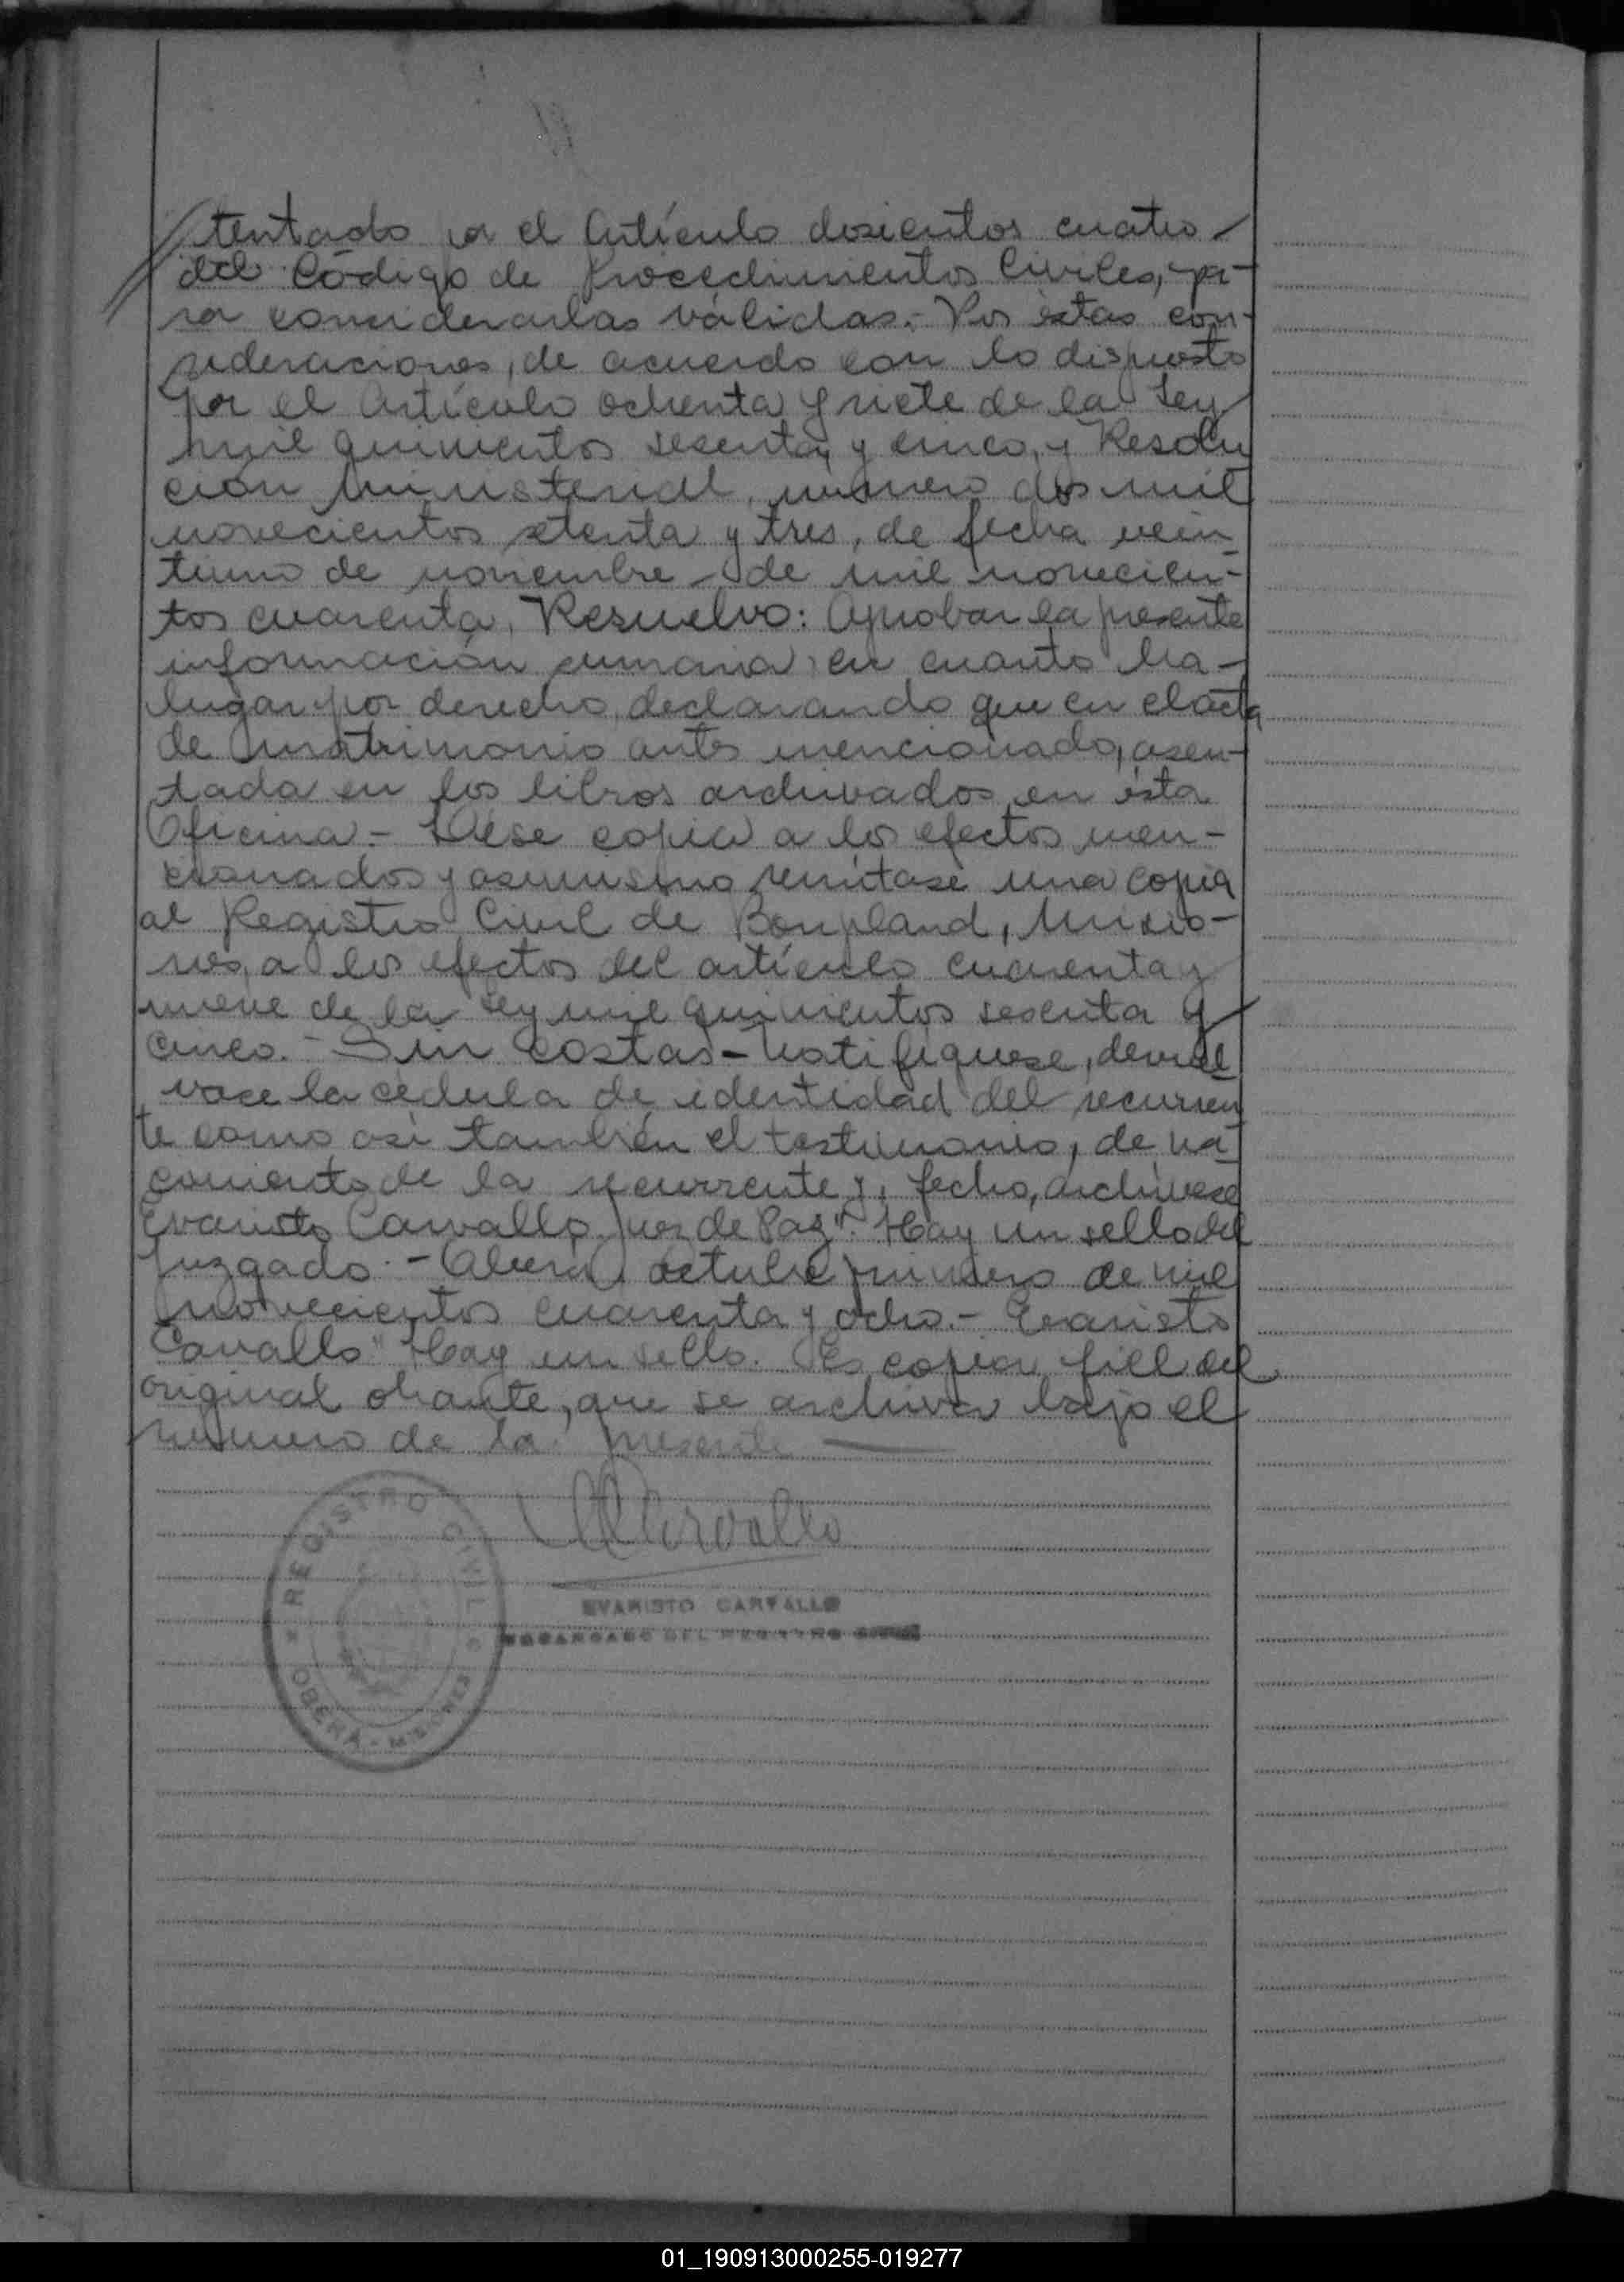 tentado por el Artículo dosientos cuatro
del Código de Procedimientos Civiles, pa-
ra considerarlas válidas.- Por éstas con-
sideraciones, de acuerdo con lo dispuesto
por el Artículo ochenta y siete de la Ley
mil quinientos sesenta y cinco, y Resolu
ción Ministerial, número dos mil
novecientos setenta y tres, de fecha vein
tiuno de noviembre de mil novecien-
tos cuarenta, Resuelvo: Aprobar la presente
información sumaria en cuanto ha-
lugar por derecho, declarando que en el acta
de matrimonio antes mencionado, asen-
tada en los libros archivados en ésta
Oficina.- Dése copia a los efectos men-
cionados y asimismo remítase una copia
al Registro Civil de Bonpland, Misio-
nes, a los efectos del artículo cuarenta y
nueve de la Ley mil quinientos sesenta y
cinco.- Sin costas- Notifíquese, devuel
vase la cédula de identidad del recurren
te como así también el testimonio, de na
cimiento de la recurrente y, fecho, archívese
Evaristo Carvallo. Juez de Paz". Hay un sello del
Juzgado.- Oberá, octubre primero de mil
novecientos cuarenta y ocho.- Evaristo
Carvallo" Hay un sello. Es copia fiel del
original obrante, que se archiva bajo el
número de la presente
Carvallo
EVARISTO CARVALLO
ENCARGADO DEL REGISTRO CIVIL
REGISTRO CIVIL
OBERÁ - MISIONES
01_190913000255-019277